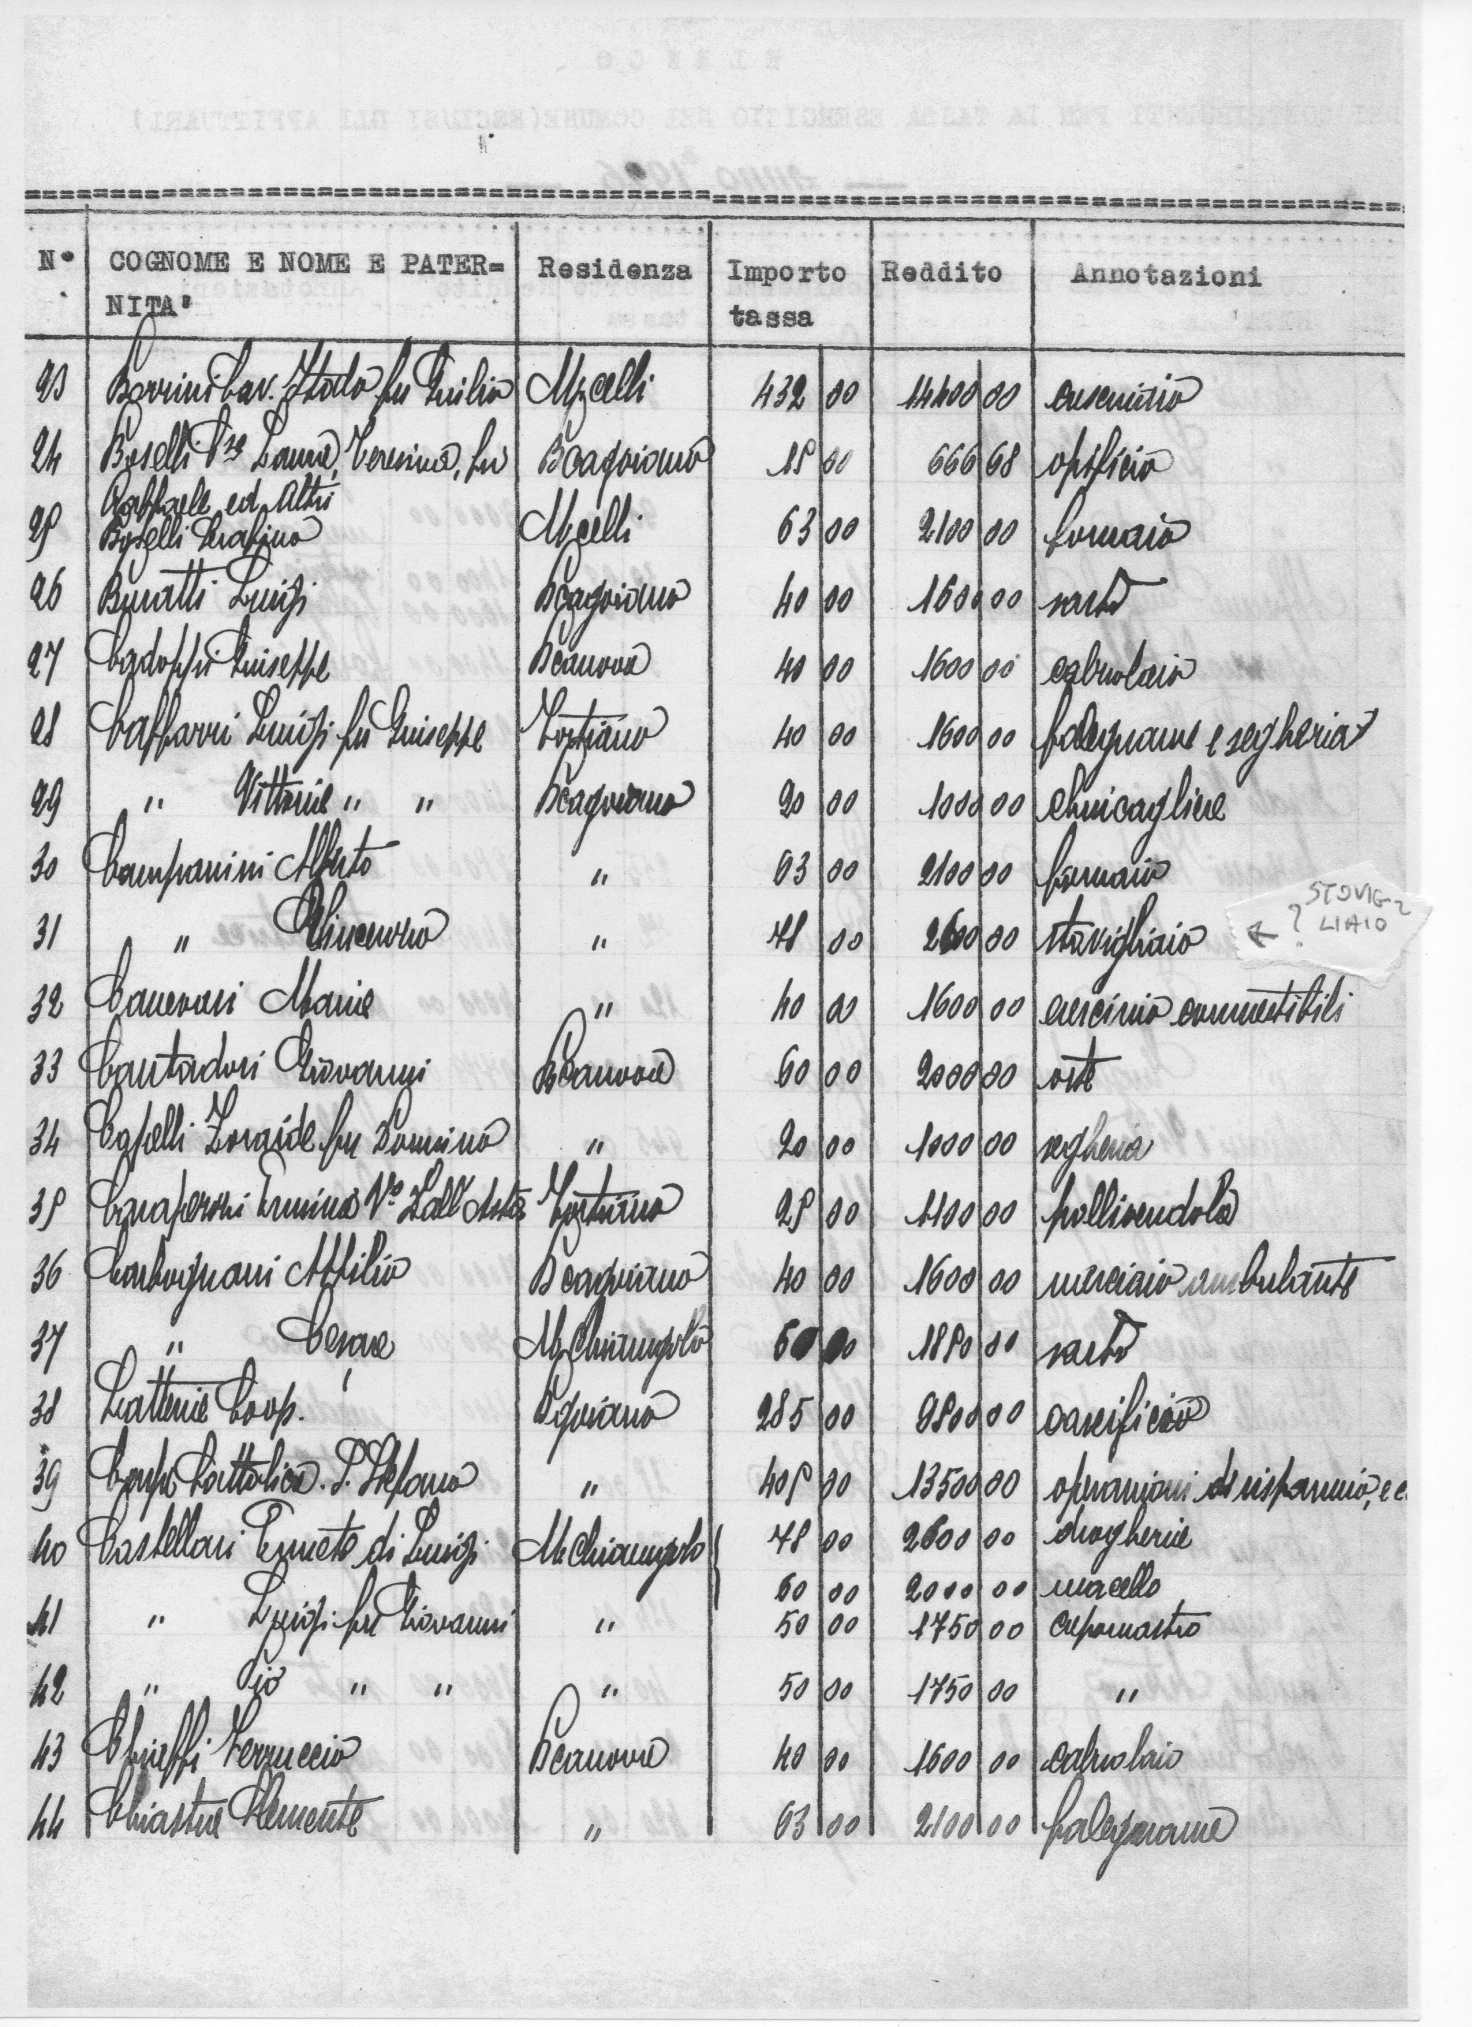 N° COGNOME E NOME E PATER= Residenza Importo Reddito Annotazioni
NITA' tassa
23 Borrini Cav. Italo fu Guilio Mzcelli 432 00 14400 00
24 Boselli Laura, Teresina, fu Bcagoiano 18 00 666 68 opificio
Raffaele ed Altri
25 Boselli Serafino Mzcelli 63 00 2100 00 fornaio
26 Buratti Luigi Bcagoiano 40 00 1600 00 sarto
27 Cadoppi Guiseppe Bcanova 40 00 1600 00 calzolaio
28 Caffarri Luigi fu Guiseppe 40 00 1600 00 falegname e segheria
29 " Vittorio " " Bcagoiano 20 00 1000 00 chincagliere
30 Campanini Alberto " 63 00 2100 00 fornaio
31 " Vincenzo " 48 00 2600 00 stovigliaio ← ? STOVIG=
LIAIO
32 Canevari Maria " 40 00 1600 00 esercizio commestibili
33 Cantadori Giovanni Bcanova 60 00 2000 00 oste
34 Capelli Zoraide fu " 20 00 1000 00 segheria
35 Vª Dall'Asta 25 00 1400 00 pollivendola
36 Carbognani Attilio Bcagoiano 40 00 1600 00 merciaio ambulante
37 " Cesare MzChiarugolo 60 00 1880 00 sarto
38 Latteria Coop. 285 00 9800 00 caseificio
39 Cattolica S. Stefano " 405 00 13500 00 operazioni di risparmio, e c
40 Castellari di Luigi MzChiarugolo 48 00 2600 00 drogheria
60 00 2000 00 macello
41 " Luigi fu Giovanni " 50 00 1750 00 capomastro
42 " Pio " " " 50 00 1750 00 "
43 Ferruccio Bcanova 40 00 1600 00 calzolaio
44 Chiastra Clemente " 63 00 2100 00 falegname